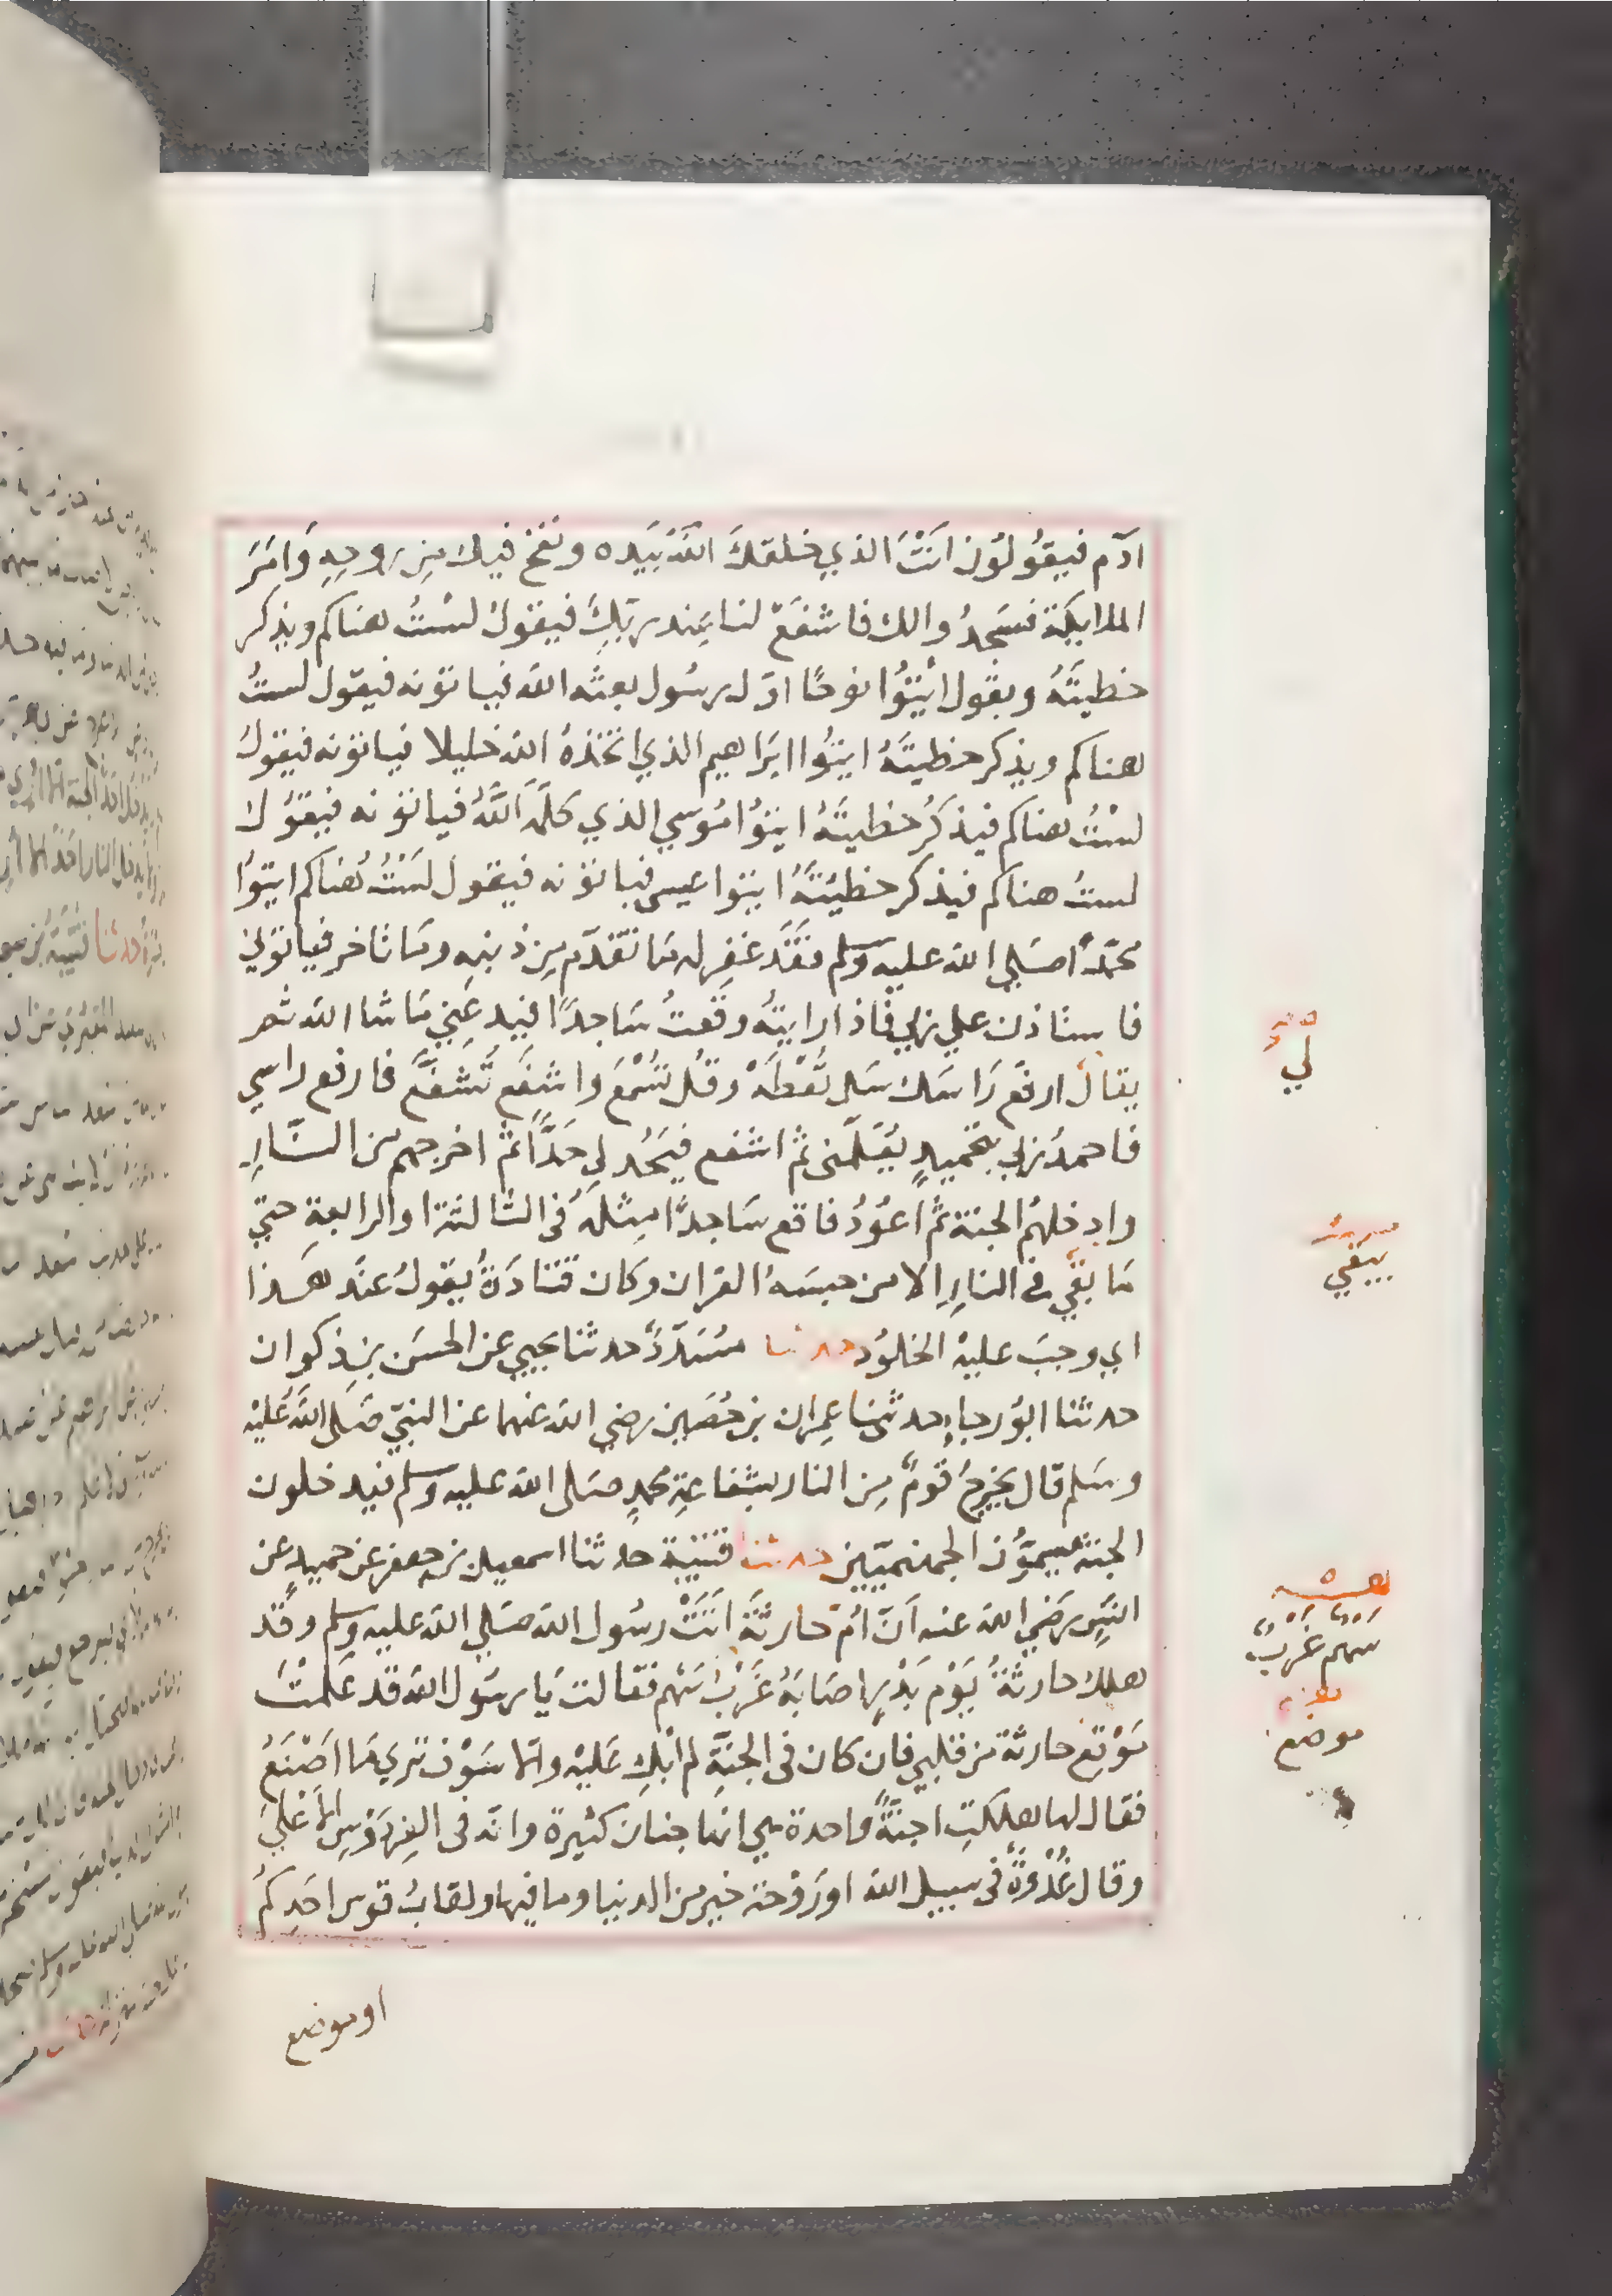 ادَم فيقُولُونَ اَنْتَ الذي خلقكَ اللهُ بيَده ونفخ فيك مِن روحِهِ وَامَرَ
الملايكة فسَجدُ والك فاشفَعْ لنا عِند ربّكَ فيقول لسْتُ هناكم ويذكر
خطيتَهُ ويقول ائيتُوا نوحًا اوّل رسُول بعثه الله فياتونه فيقول لستُ
هناكم ويذكر خطيتَهُ ايتُوا ابرَاهيم الذي اتخذهُ الله خليلا فياتونه فيقولُ
لسْتُ هناكم فيذكرُ خطيتَهُ ايتوُا مُوسي الذي كلّمَهُ اللَّهُ فياتونه فيقوُل
لستُ هناكم فيذكر خطيئتَهُ ايتوا عيسى فياتونه فيقول لَسْتُ هُناكم ايتوُا
محمّدًا صَلي الله عليه وسلم فقَدَ غفِر له مَا تقدّم مِن ذنبِه ومَا تاخر فياتوني
فاستاذن علي ربي فاذا رايتهُ وقعتُ سَاجدًا فيدعني مَا شا الله ثم
يقالُ ارفَع رَاسَك سَل تُعْطَهْ وقُل تُسْمَعْ واشفَع تُشفَّعْ فارفع راسي
فاحمدُ ربي بتحميدٍ يُعَلّمنى ثم اشفع فيَحُد لي حَدًّا ثم اخرجهم من النّارِ
وادخلهُم الجنة ثم اعُودُ فاقع سَاجدًا مِثلَهُ في الثالثة اوالرابعةِ حتي
مَا بقَي في النارِ الا من حبسَهُ القران وكان قتادَةُ يقولُ عندَ هَذا
اي وجبَ عليهْ الخلوُد حدثنا مسَدّدٌ حدثنا يحيي عن الحسَن بن ذكوان
حدثنا ابوُ رجاءٍ حدثنا عِمران بن حُصَين رضي الله عنهما عن النبيّ صَلى الله عَليْه
وسَلم قال يخرجُ قومٌ مِن النار بشفاعةِ محمدٍ صَلى الله عليه وسلم فيدخلون
الجنة يسمّوُن الجهنميّين حدثنا قتيبة حدثنا اسمعيل بن جعفر عن حميدٍ عن
انسٍ رضي الله عنه اَنّ اُمّ حارثةَ اَتَتْ رسُول الله صَلي الله عليه وسلم وقد
هلك حارثةُ يَوْم بَدْرٍ اصَابَهُ غَرْبُ سَهْم فقالت يَا رسُول الله قد عَلمْتَ
مَوْقع حارثة من قلبي فان كان فى الجنَّةِ لم ابْكِ عَليْه والا سَوْف تري مَا اصْنَعُ
فقال لها هلكتِ اجنّةٌ واحدة هي انها جنان كثيرة وانه فى الفِردَوْسِ الاَعْليَ
وقال غُدْوةٌ فى سبيل الله اورَوْحة خير من الدنيا وما فيها ولقابُ قوس احَدِكُم
لي
يبقي
سَهْمٌ غَرْبٌ
موضع
اوموضع